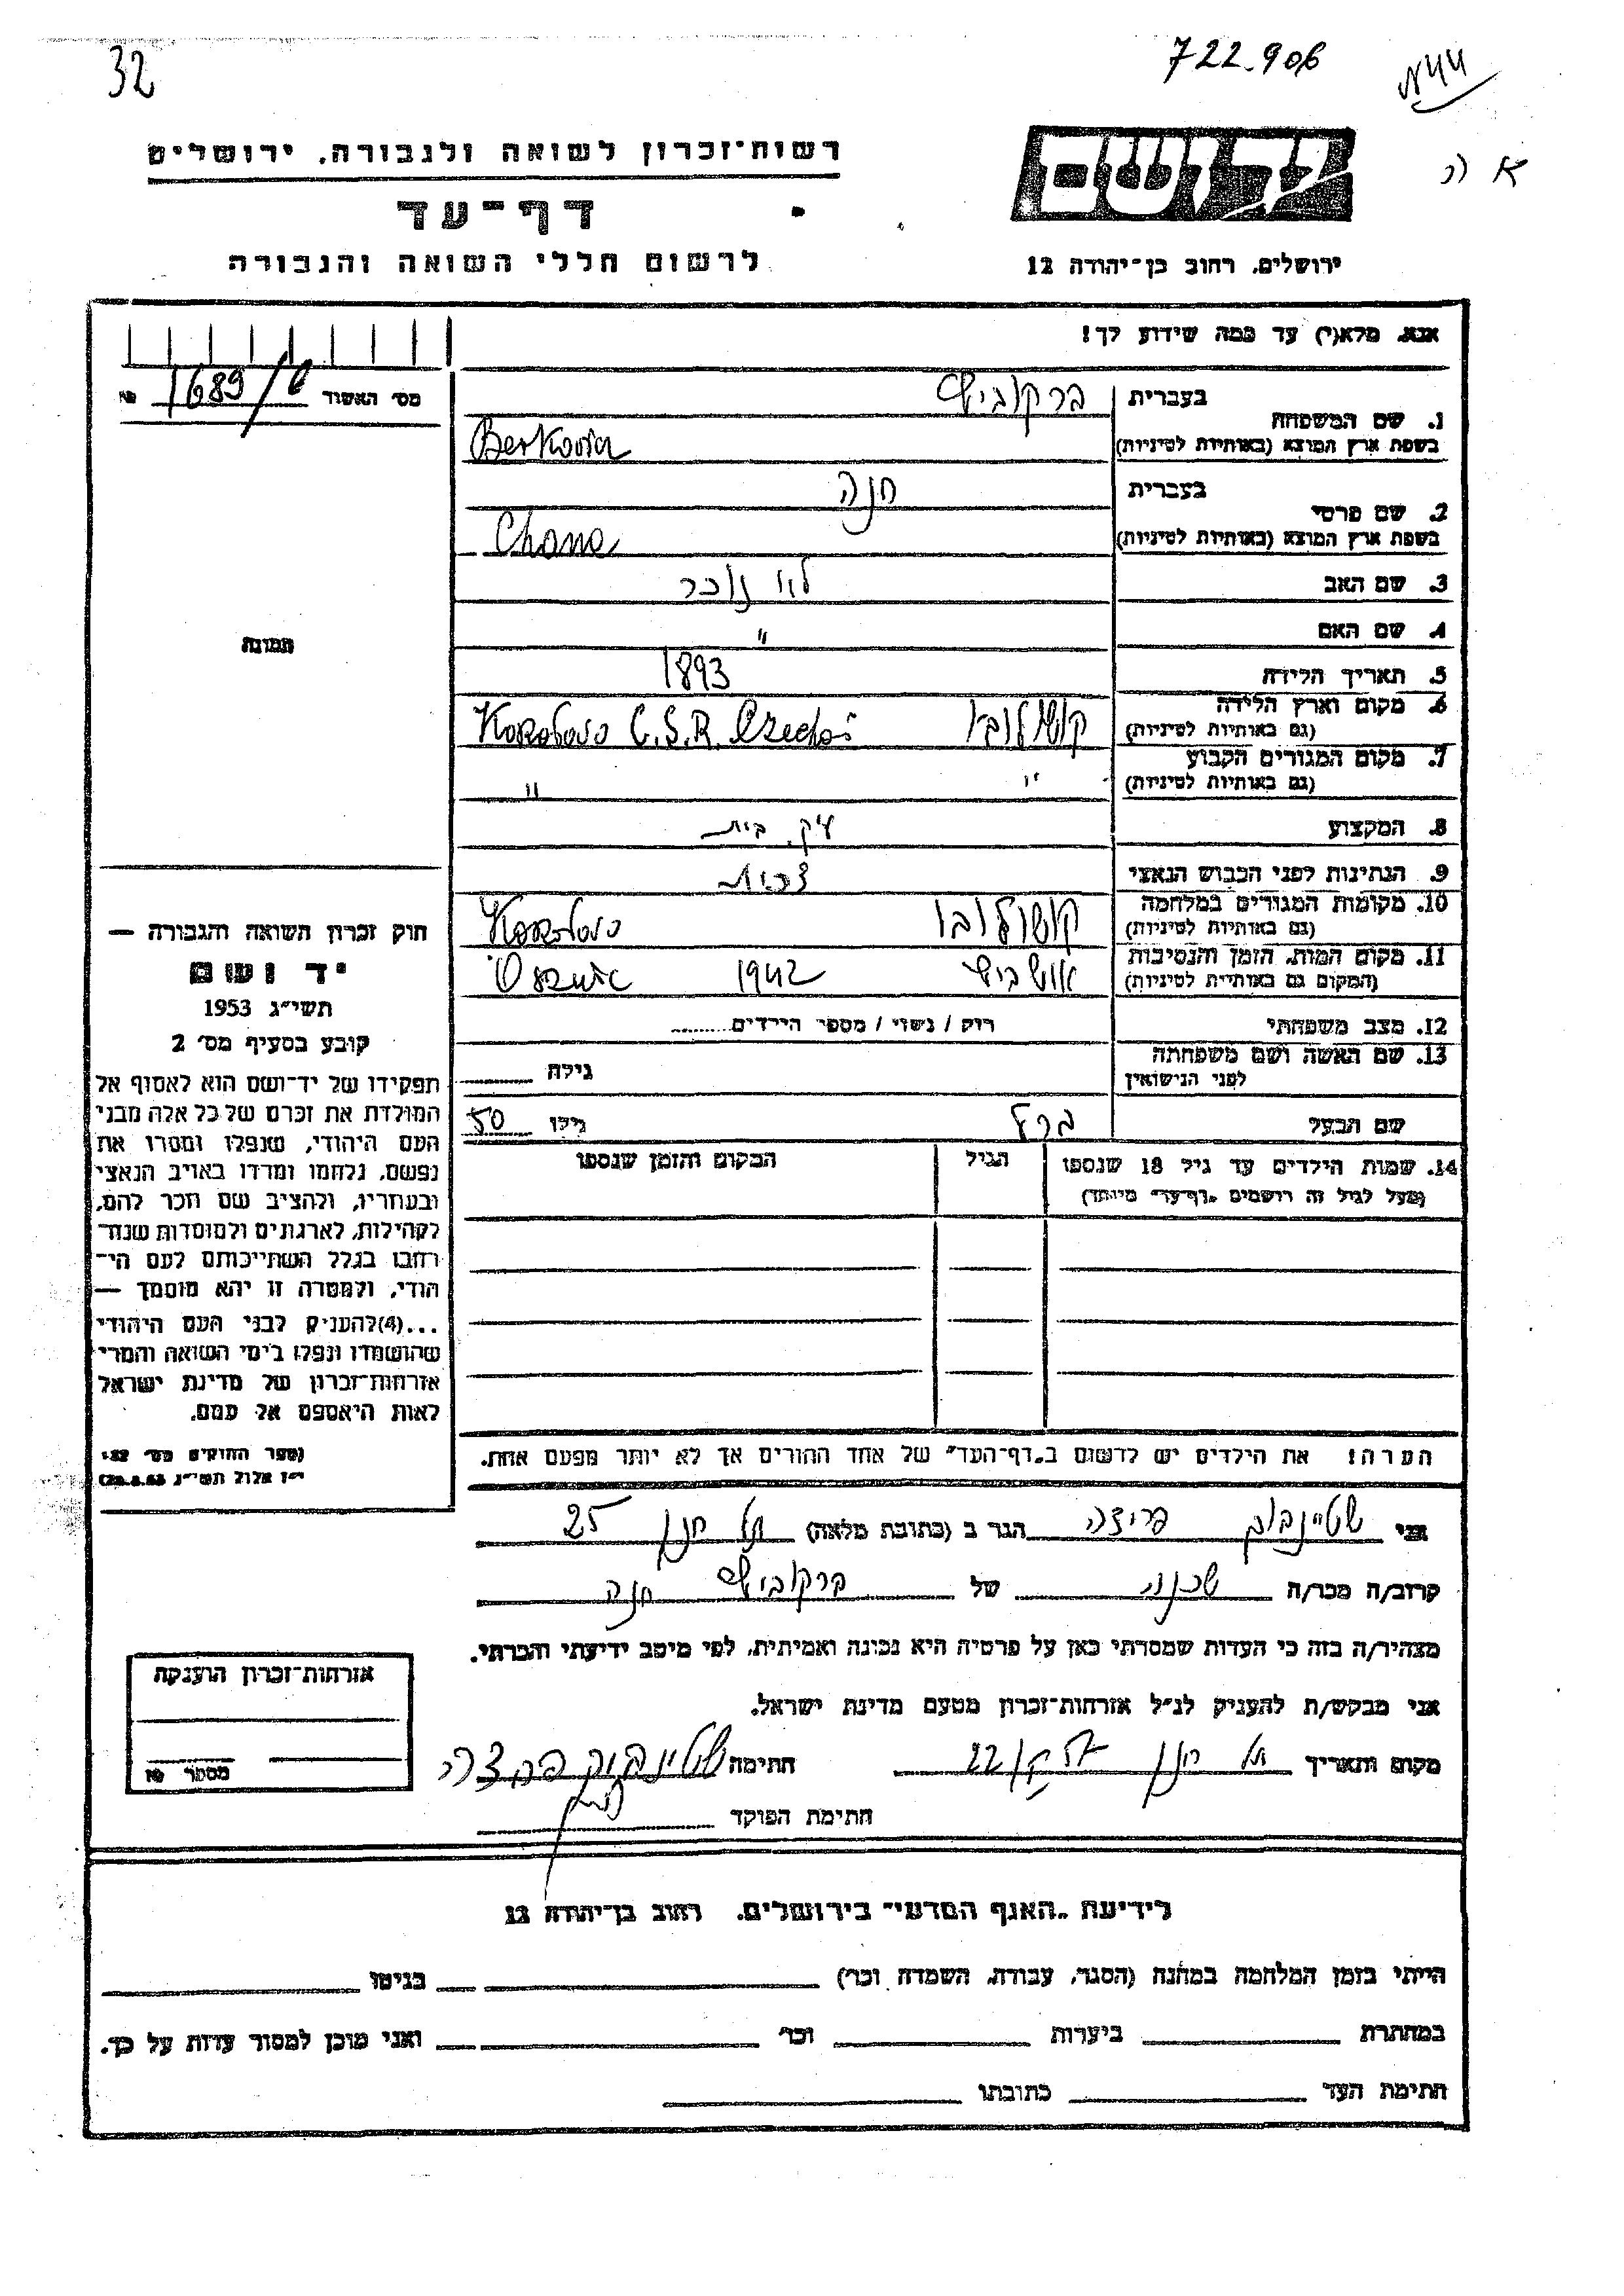 32
722.906
רשות־זכרון לשואה ולגבורה, ירושלים
דף־עד
לרשום חללי השואה והגבורה
יד ושם
ירושלים, רחוב בן־יהודה 12
אנא, מלא(י) עד כמה שידוע לך!
מס׳ האשוד 1689/
1. שם המשפחה בעברית ברקוביש
בשפת ארץ המוצא (באותיות לטיניות)
2. שם פרטי בעברית חנה
בשפת ארץ המוצא (באותיות לטיניות) Chana
3. שם האב לא זוכר
4. שם האם "
5. תאריך הלידה 1893
6. מקום וארץ הלידה קושולובו C.S.R.
(גם באותיות לטיניות)
7. מקום המגורים הקבוע " "
(גם באותיות לטיניות)
8. המקצוע עק. בית
9. הנתינות לפני הכבוש הנאצי צכית
10. מקומות המגורים במלחמה קושולובו
(גם באותיות לטיניות)
11. מקום המות, הזמן והנסיבות אושביש 1942
(המקום גם באותיות לטיניות)
12. מצב משפחתי רוק / נשוי / מספר הילדים........
13. שם האשה ושם משפחתה גילה
לפני הנישואין
שם הבעל ברל גילו 50
14. שמות הילדים עד גיל 18 שנספו הגיל המקום והזמן שנספו
(מעל לגיל זה רושמים „דף־עד״ מיוחד)
הערה! את הילדים יש לרשום ב„דף־העד״ של אחד ההורים אך לא יותר מפעם אחת.
תמונה
חוק זכרון השואה והגבורה —
יד ושם
תשי״ג 1953
קובע בסעיף מס׳ 2
תפקידו של יד־ושם הוא לאסוף אל
המולדת את זכרם של כל אלה מבני
העם היהודי, שנפלו ומסרו את
נפשם, נלחמו ומרדו באויב הנאצי
ובעוזריו, ולהציב שם וזכר להם,
לקהילות, לארגונים ולמוסדות שנח־
רבו בגלל השתייכותם לעם הי־
הודי, ולמטרה זו יהא מוסמך —
...(4)להעניק לבני העם היהודי
שהושמדו ונפלו בימי השואה והמרי
אזרחות־זכרון של מדינת ישראל
לאות היאספם אל עמם.
(ספר החוקים מס׳ 132
י״ז אלול תשי״ג 28.8.53)
אני שטיינבוק פריצה הגר ב (כתובת מלאה) תל חנן 25
קרוב/ה מכר/ה שכנה של ברקוביש חנה
מצהיר/ה בזה כי העדות שמסרתי כאן על פרטיה היא נכונה ואמיתית, לפי מיטב ידיעתי והכרתי.
אני מבקש/ת להעניק לנ״ל אזרחות־זכרון מטעם מדינת ישראל.
מקום ותאריך תל חנן חתימה
חתימת הפוקד
אזרחות־זכרון הוענקה
מספר
לידיעת „האגף המדעי״ בירושלים, רחוב בן־יהודה 12
הייתי בזמן המלחמה במחנה (הסגר, עבודה, השמדה וכו׳) בגיטו
במחתרת ביערות וכו׳ ואני מוכן למסור עדות על כך.
חתימת העד כתובתו